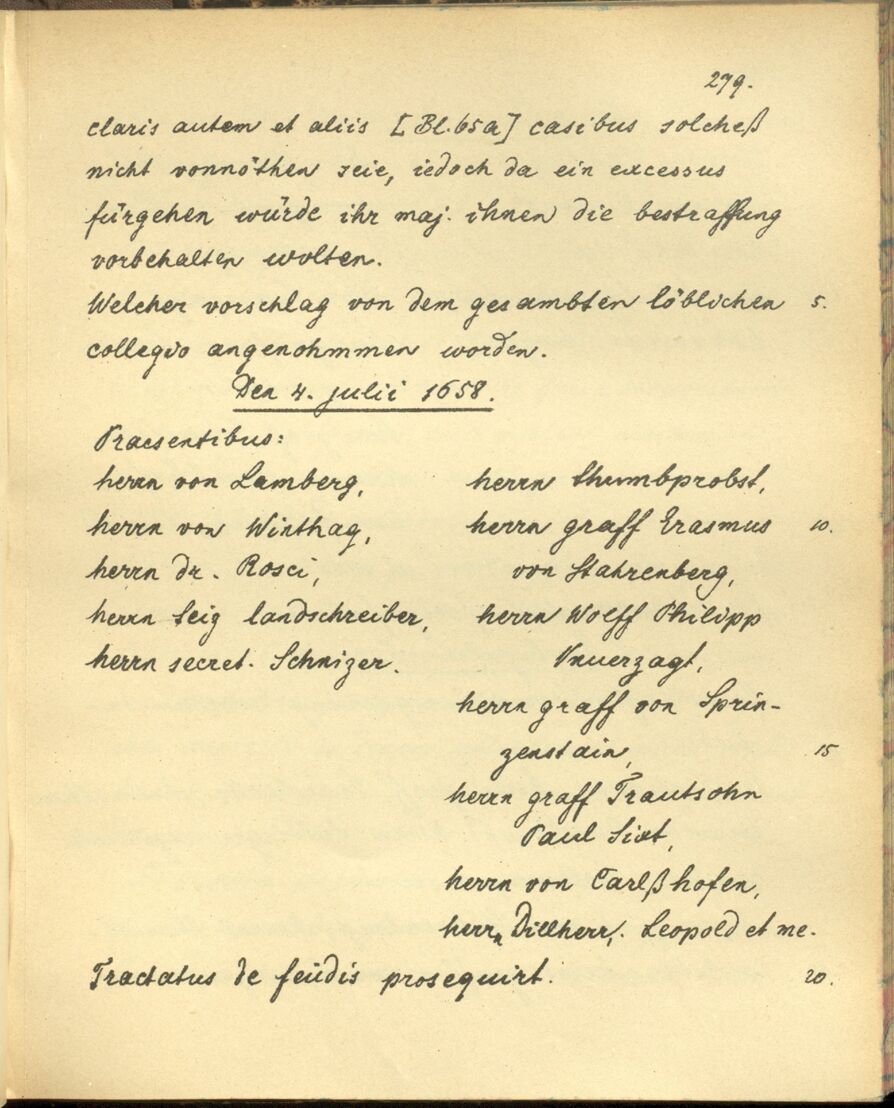 279.
claris autem et aliis [Bl. 65a] casibus solcheß
nicht vonnöthen seie, iedoch da ein excessus
fürgehen würde ihr maj. ihnen die bestraffung
vorbehalten wolten.
Welcher vorschlag von dem gesambten löblichen 5.
collegio angenohmmen worden.
Den 4. julii 1658.
Praesentibus:
herrn von Lamberg,
herrn von Winthag,
herrn dr. Rosci,
herrn Seig landschreiber,
herrn secret. Schnizer.
herrn thumbprobst,
herrn graff Erasmus 10.
von Stahrenberg,
herrn Wolff Philipp
Unverzagt,
herrn graff von Sprin-
zenstain, 15
herrn graff Trautsohn
Paul Sixt,
herrn von Carlßhofen,
herrn Dillherr, Leopold et me.
Tractatus de feüdis prosequirt. 20.